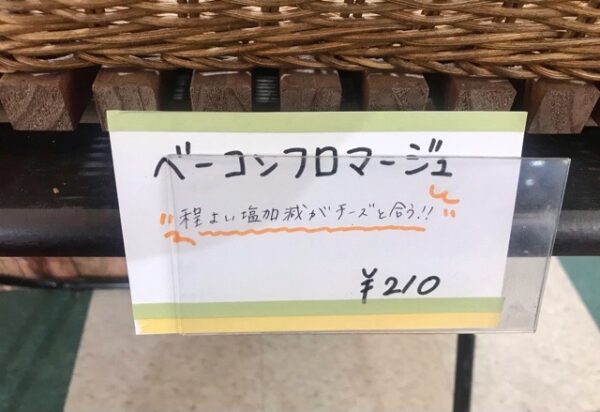 ベーコンフロマージュ
"程よい塩加減がチーズと合う!!"
¥210